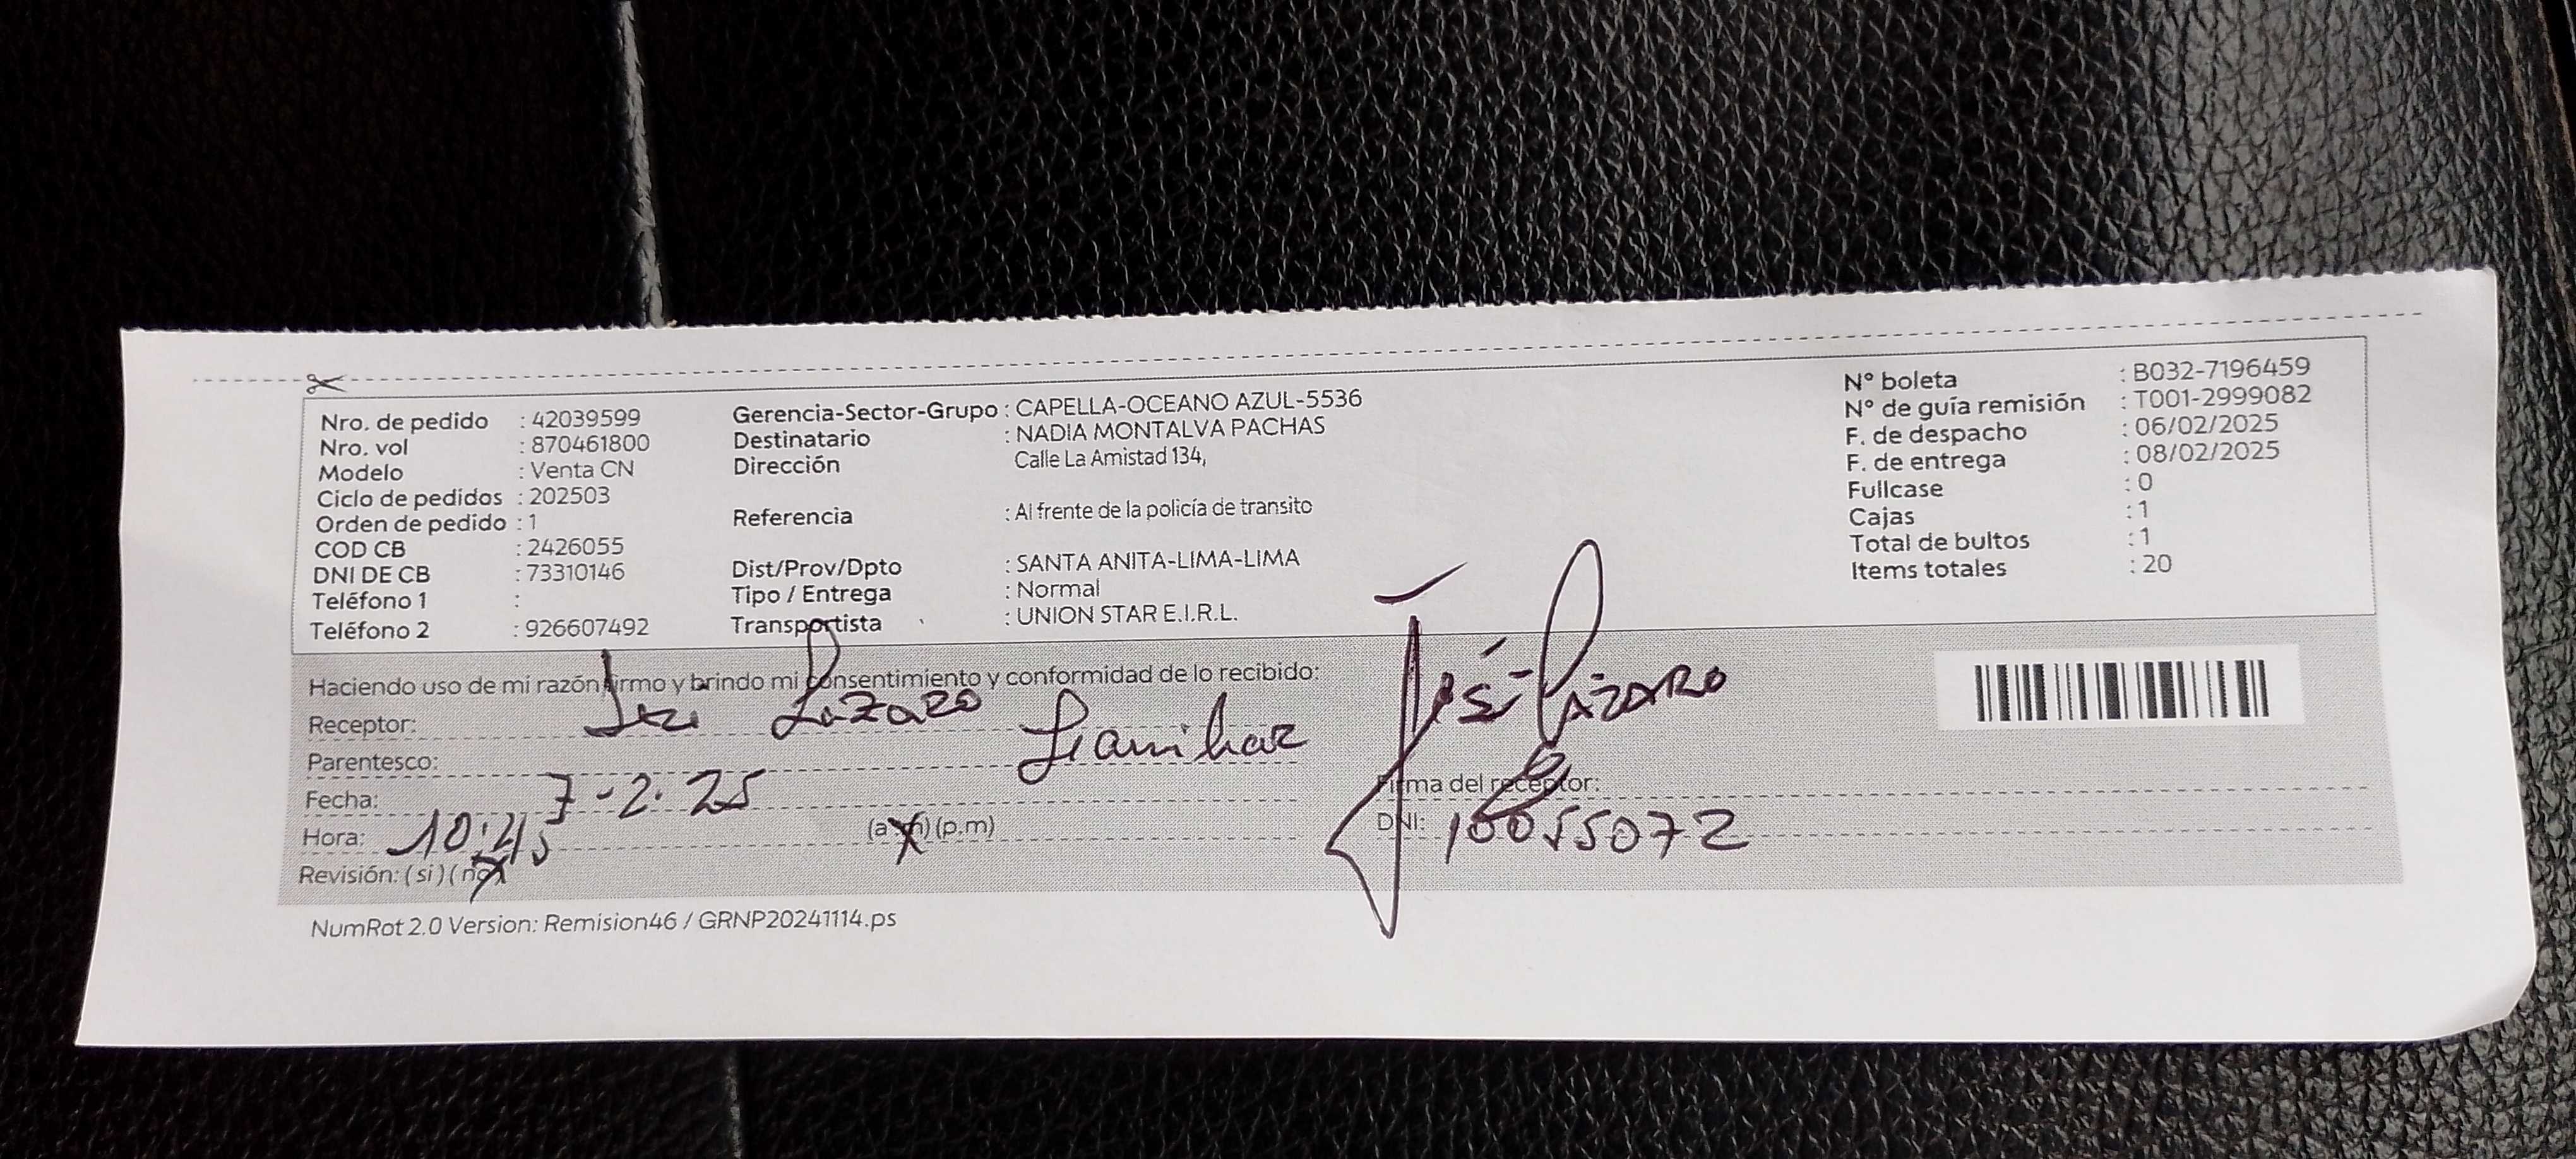 Nro. de pedido : 42039599
Nro. vol : 870461800
Modelo : Venta CN
Ciclo de pedidos : 202503
Orden de pedido : 1
COD CB : 2426055
DNI DE CB : 73310146
Teléfono 1 :
Teléfono 2 : 926607492
Gerencia-Sector-Grupo : CAPELLA-OCEANO AZUL-5536
Destinatario : NADIA MONTALVA PACHAS
Dirección Calle La Amistad 134,
Referencia : Al frente de la policía de transito
Dist/Prov/Dpto : SANTA ANITA-LIMA-LIMA
Tipo / Entrega : Normal
Transportista : UNION STAR E.I.R.L.
N° boleta : B032-7196459
N° de guía remisión : T001-2999082
F. de despacho : 06/02/2025
F. de entrega : 08/02/2025
Fullcase : 0
Cajas : 1
Total de bultos : 1
Items totales : 20
Haciendo uso de mi razón firmo y brindo mi consentimiento y conformidad de lo recibido:
Receptor: Lazaro
Parentesco: familiar
Fecha: 7-2-25
Hora: 10:45 (a.m) (p.m)
Revisión: ( si ) ( no )
José Lázaro
Firma del receptor:
DNI: 10055072
NumRot 2.0 Version: Remision46 / GRNP20241114.ps